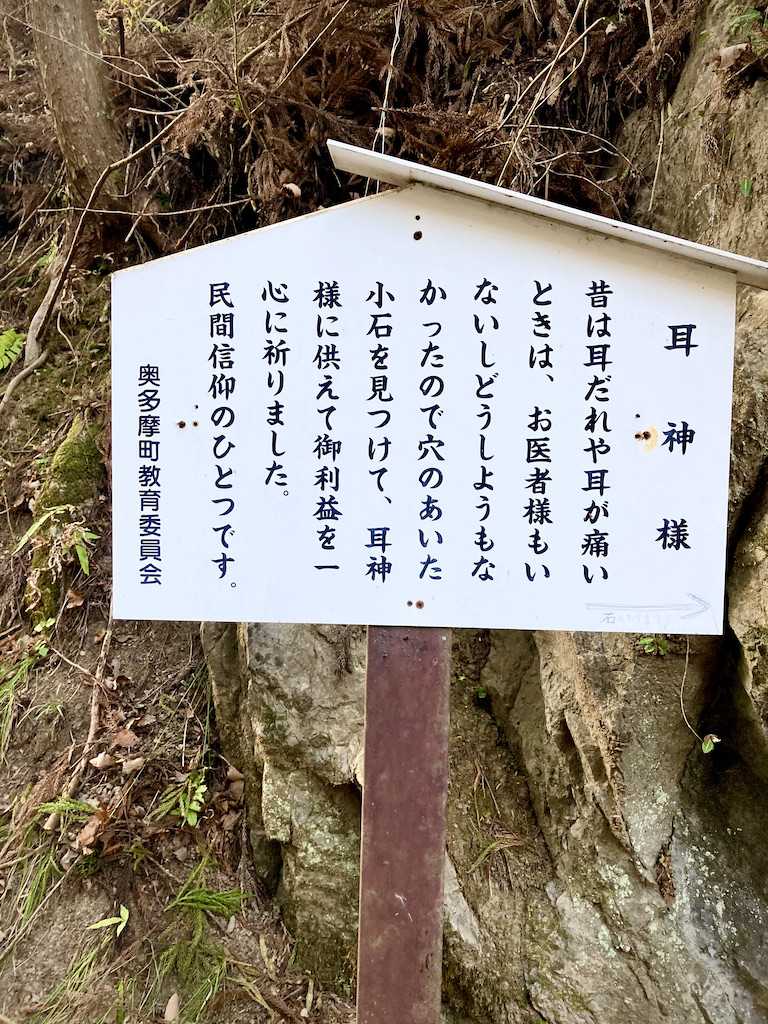 耳神様
昔は耳だれや耳が痛い
ときは、お医者様もい
ないしどうしようもな
かったので穴のあいた
小石を見つけて、耳神
様に供えて御利益を一
心に祈りました。
民間信仰のひとつです。
奥多摩町教育委員会
石